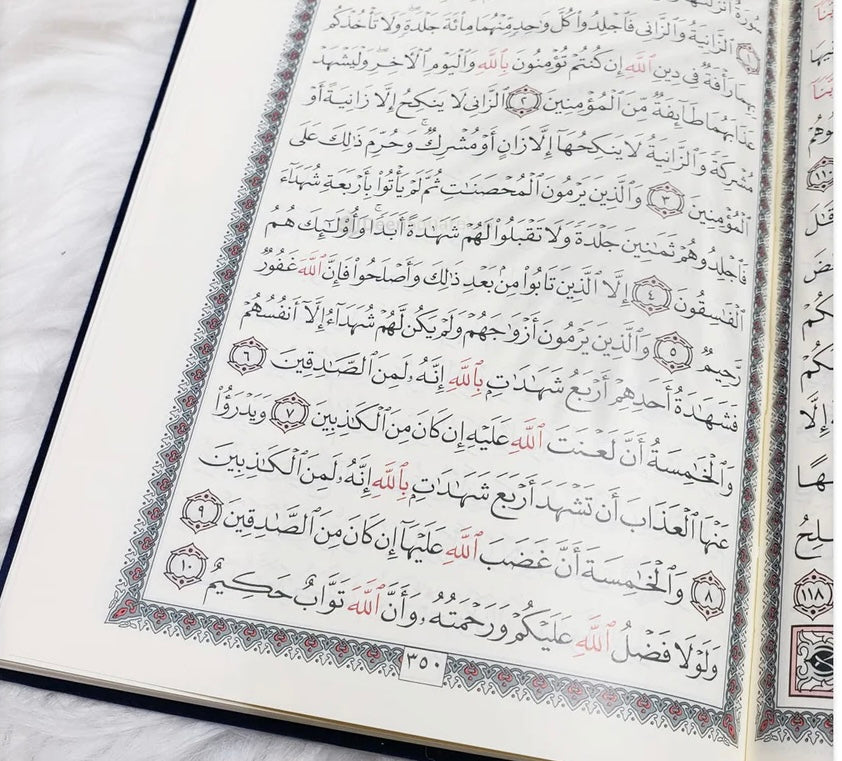 سُورَةٌ أَنزَلْنَٰهَا
ٱلزَّانِيَةُ وَٱلزَّانِى فَٱجْلِدُوا۟ كُلَّ وَٰحِدٍ مِّنْهُمَا مِا۟ئَةَ جَلْدَةٍ وَلَا تَأْخُذْكُم
بِهِمَا رَأْفَةٌ فِى دِينِ ٱللَّهِ إِن كُنتُمْ تُؤْمِنُونَ بِٱللَّهِ وَٱلْيَوْمِ ٱلْءَاخِرِ وَلْيَشْهَدْ
عَذَابَهُمَا طَآئِفَةٌ مِّنَ ٱلْمُؤْمِنِينَ ٢ ٱلزَّانِى لَا يَنكِحُ إِلَّا زَانِيَةً أَوْ
مُشْرِكَةً وَٱلزَّانِيَةُ لَا يَنكِحُهَآ إِلَّا زَانٍ أَوْ مُشْرِكٌ ۚ وَحُرِّمَ ذَٰلِكَ عَلَى
ٱلْمُؤْمِنِينَ ٣ وَٱلَّذِينَ يَرْمُونَ ٱلْمُحْصَنَٰتِ ثُمَّ لَمْ يَأْتُوا۟ بِأَرْبَعَةِ شُهَدَآءَ
فَٱجْلِدُوهُمْ ثَمَٰنِينَ جَلْدَةً وَلَا تَقْبَلُوا۟ لَهُمْ شَهَٰدَةً أَبَدًا ۚ وَأُو۟لَٰٓئِكَ هُمُ
ٱلْفَٰسِقُونَ ٤ إِلَّا ٱلَّذِينَ تَابُوا۟ مِنۢ بَعْدِ ذَٰلِكَ وَأَصْلَحُوا۟ فَإِنَّ ٱللَّهَ غَفُورٌ
رَّحِيمٌ ٥ وَٱلَّذِينَ يَرْمُونَ أَزْوَٰجَهُمْ وَلَمْ يَكُن لَّهُمْ شُهَدَآءُ إِلَّآ أَنفُسُهُمْ
فَشَهَٰدَةُ أَحَدِهِمْ أَرْبَعُ شَهَٰدَٰتٍۭ بِٱللَّهِ ۙ إِنَّهُۥ لَمِنَ ٱلصَّٰدِقِينَ ٦
وَٱلْخَٰمِسَةُ أَنَّ لَعْنَتَ ٱللَّهِ عَلَيْهِ إِن كَانَ مِنَ ٱلْكَٰذِبِينَ ٧ وَيَدْرَؤُا۟
عَنْهَا ٱلْعَذَابَ أَن تَشْهَدَ أَرْبَعَ شَهَٰدَٰتٍۭ بِٱللَّهِ ۙ إِنَّهُۥ لَمِنَ ٱلْكَٰذِبِينَ
٨ وَٱلْخَٰمِسَةَ أَنَّ غَضَبَ ٱللَّهِ عَلَيْهَآ إِن كَانَ مِنَ ٱلصَّٰدِقِينَ ٩
وَلَوْلَا فَضْلُ ٱللَّهِ عَلَيْكُمْ وَرَحْمَتُهُۥ وَأَنَّ ٱللَّهَ تَوَّابٌ حَكِيمٌ ١٠
٣٥٠
١١٠
قَٰلَ
إِلَّا
١١٨